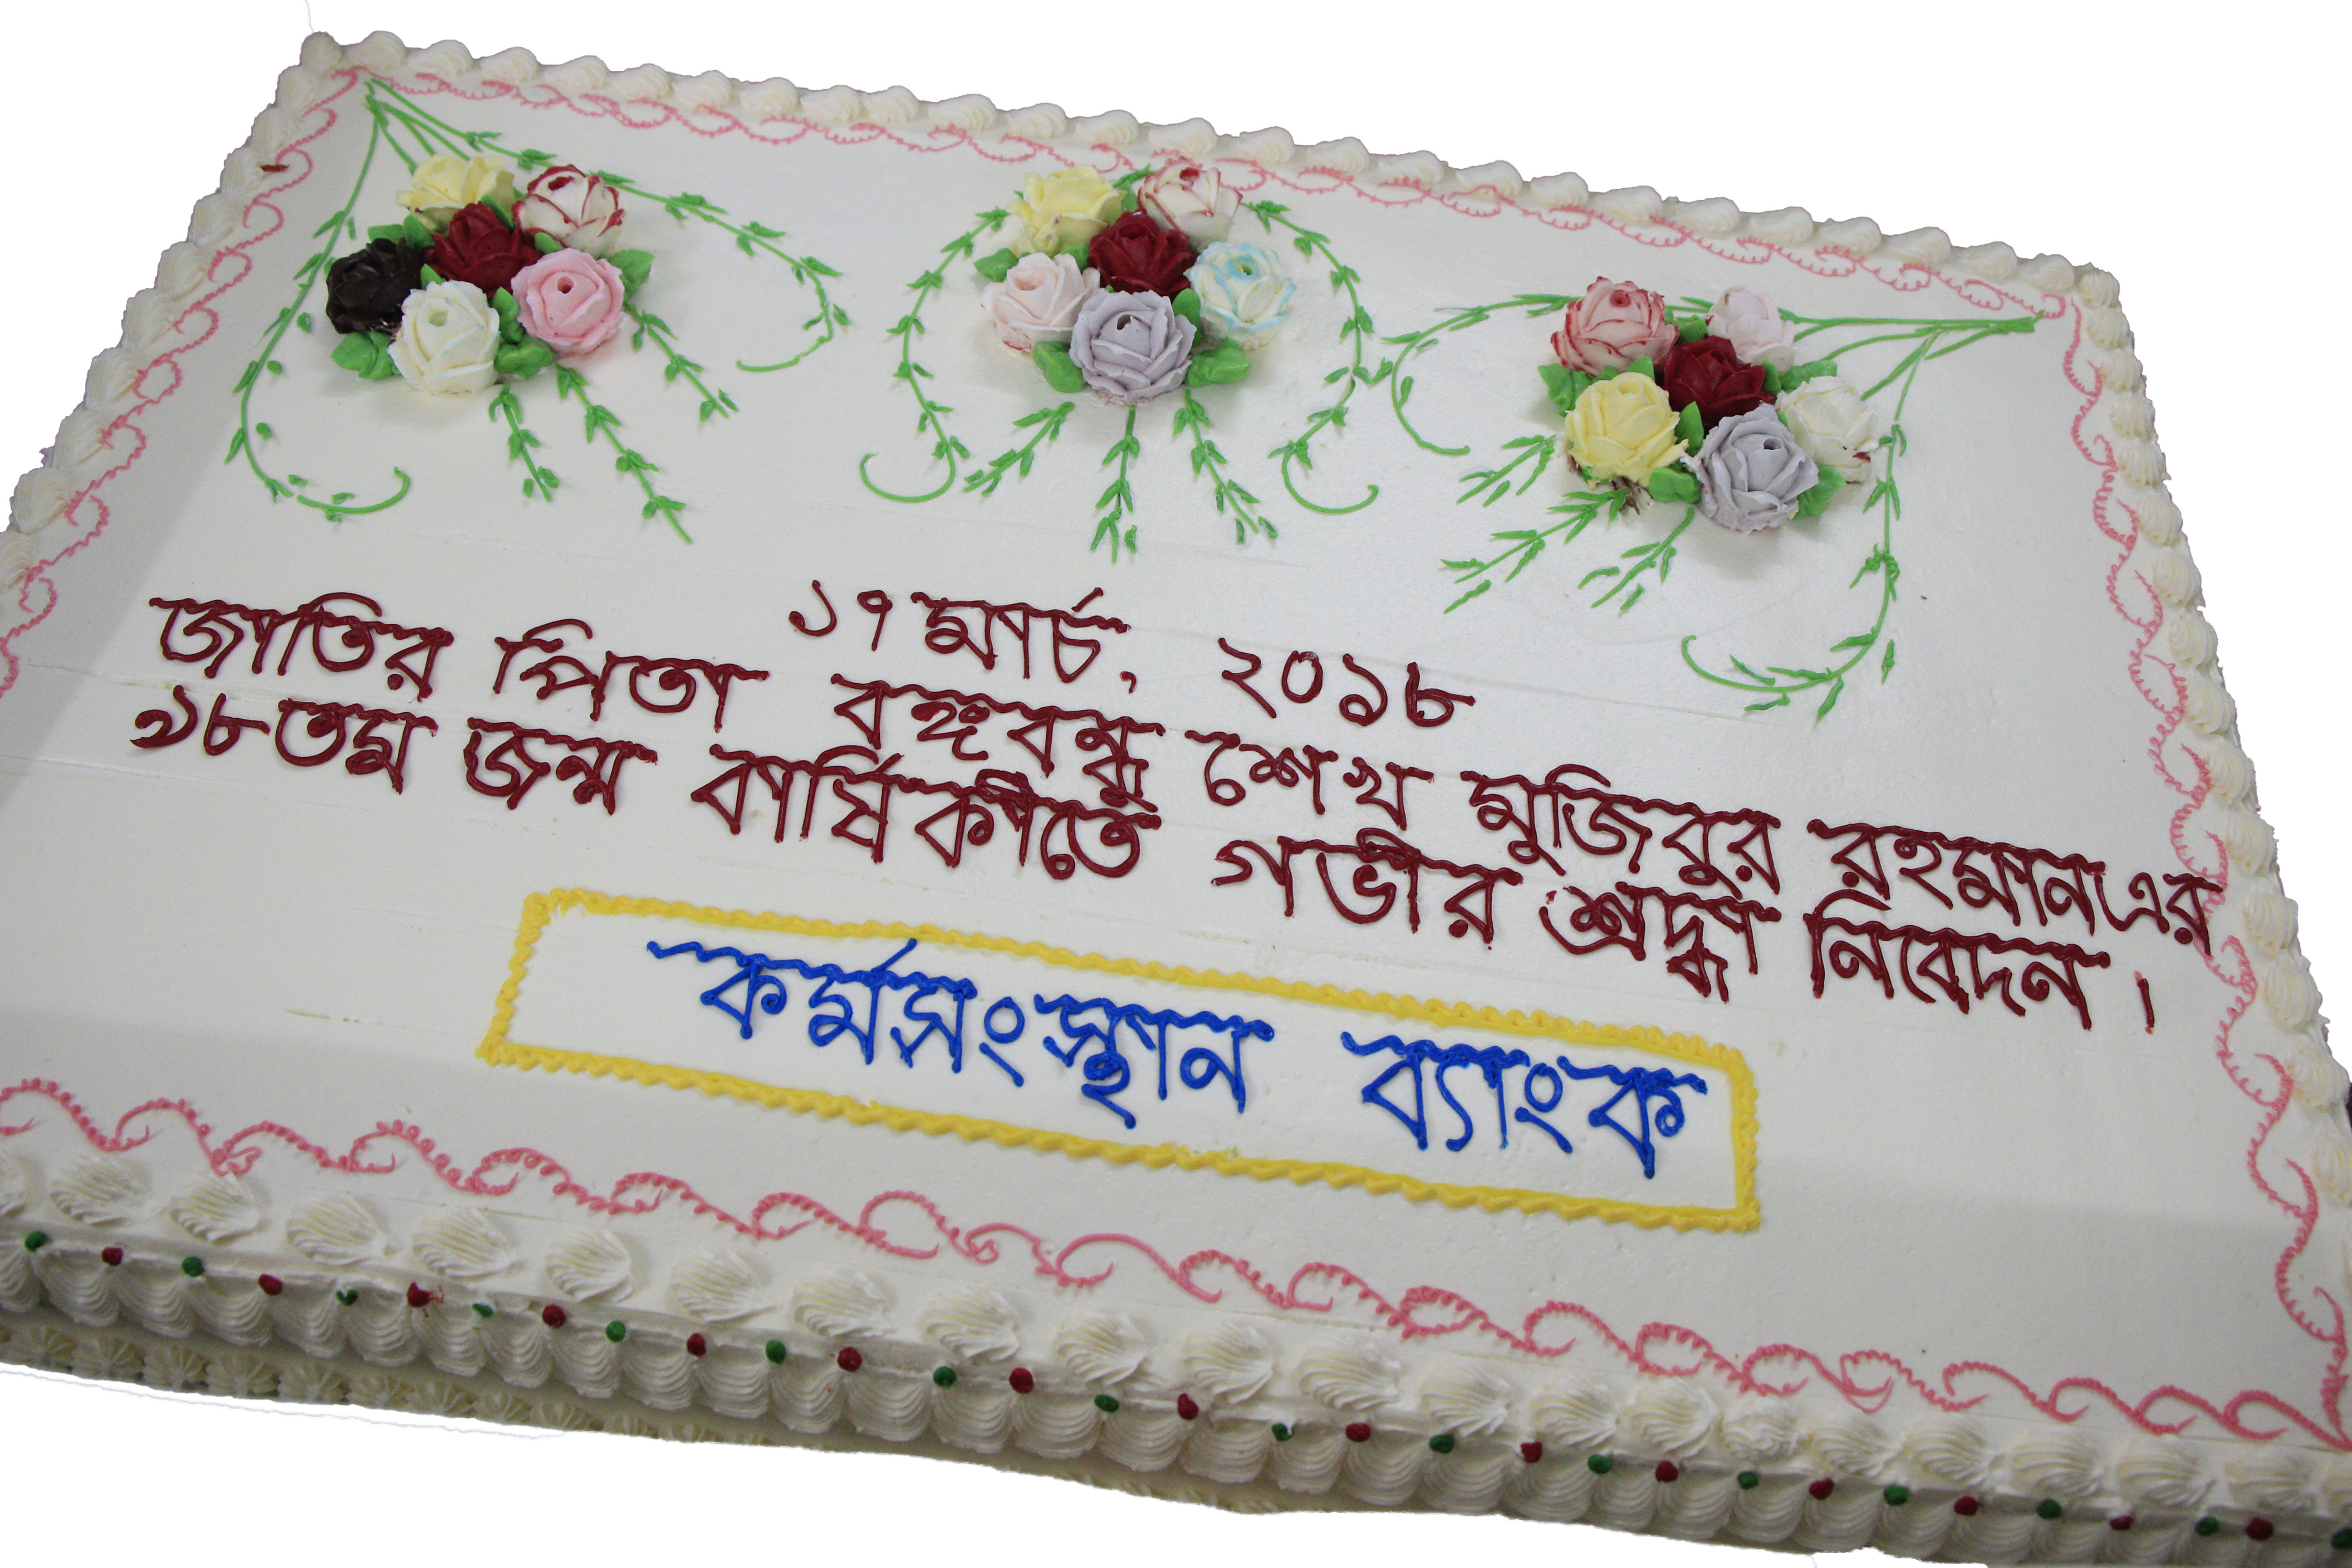 ১৭ মার্চ, ২০১৮
জাতির পিতা বঙ্গবন্ধু শেখ মুজিবুর রহমানএর
৯৮তম জন্ম বার্ষিকীতে গভীর শ্রদ্ধা নিবেদন।
কর্মসংস্থান ব্যাংক